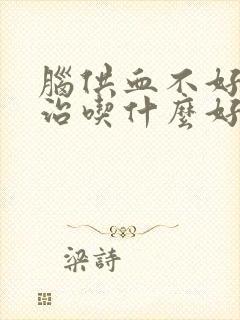 腦供血不好
治喫什麼好
梁詩